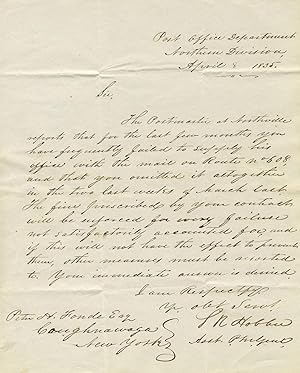 Post Office Department
Northern Division,
April 8 1835.
Sir,
The Postmaster at Northville
reports that for the last few months you
have frequently failed to supply his
office with the mail on Route No 608,
and that you omitted it altogether
in the two last weeks of March last.
The fine prescribed by your contracts
will be enforced for every failure
not satisfactorily accounted for, and
if this will not have the effect to prevent
them, other measures must be resorted
to. Your immediate answer is desired
I am Respectfy
Yr. obt Servt.
S R Hobbie
Asst PMGenl
Peter H. Fonda Esq
Caughnawaga
New York